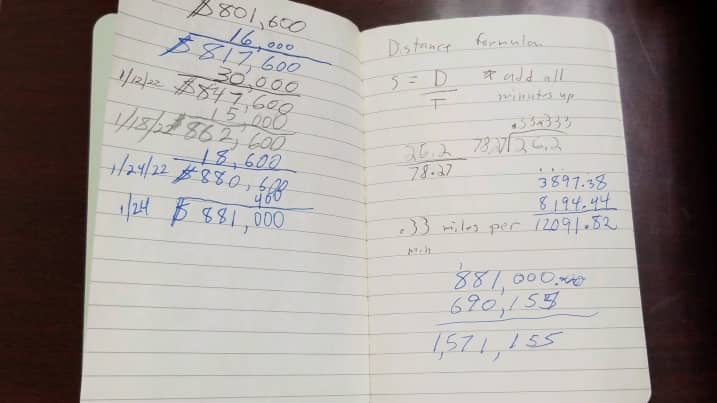 $801,600
16,000
$817,600
30,000
1/12/22 $847,600
15,000
1/18/22 $862,600
18,600
1/24/22 $880,600
400
1/24 $881,000
Distance formula
S = D * add all
T minutes up
26.2
78.27
26.2
3897.38
8,194.44
12091.82
.33 miles per
min
881,000.00
690,155
1,571,155